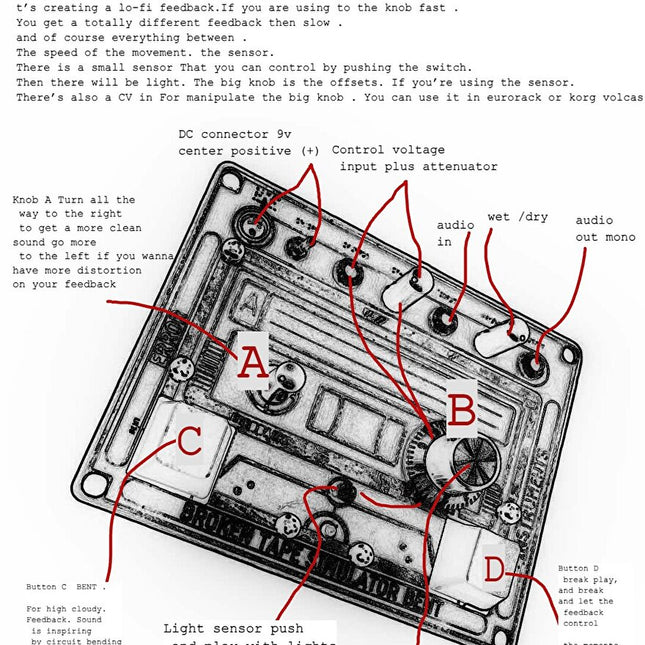 t's creating a lo-fi feedback.If you are using to the knob fast .
You get a totally different feedback then slow .
and of course everything between .
The speed of the movement. the sensor.
There is a small sensor That you can control by pushing the switch.
Then there will be light. The big knob is the offsets. If you're using the sensor.
There's also a CV in For manipulate the big knob . You can use it in eurorack or korg volcas
DC connector 9v
center positive (+)
Control voltage
input plus attenuator
Knob A Turn all the
way to the right
to get a more clean
sound go more
to the left if you wanna
have more distortion
on your feedback
audio
in
wet /dry
audio
out mono
A
A
B
C
D
INSTRUMENTS
BROKEN TAPE SIMULATOR BENT
Button C BENT .
For high cloudy.
Feedback. Sound
is inspiring
by circuit bending
Light sensor push
and play with lights
Button D
break play,
and break
and let the
feedback
control